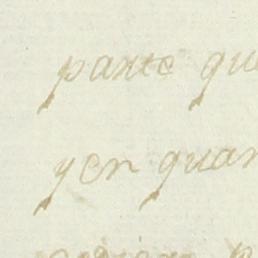 parte qu
yen quan